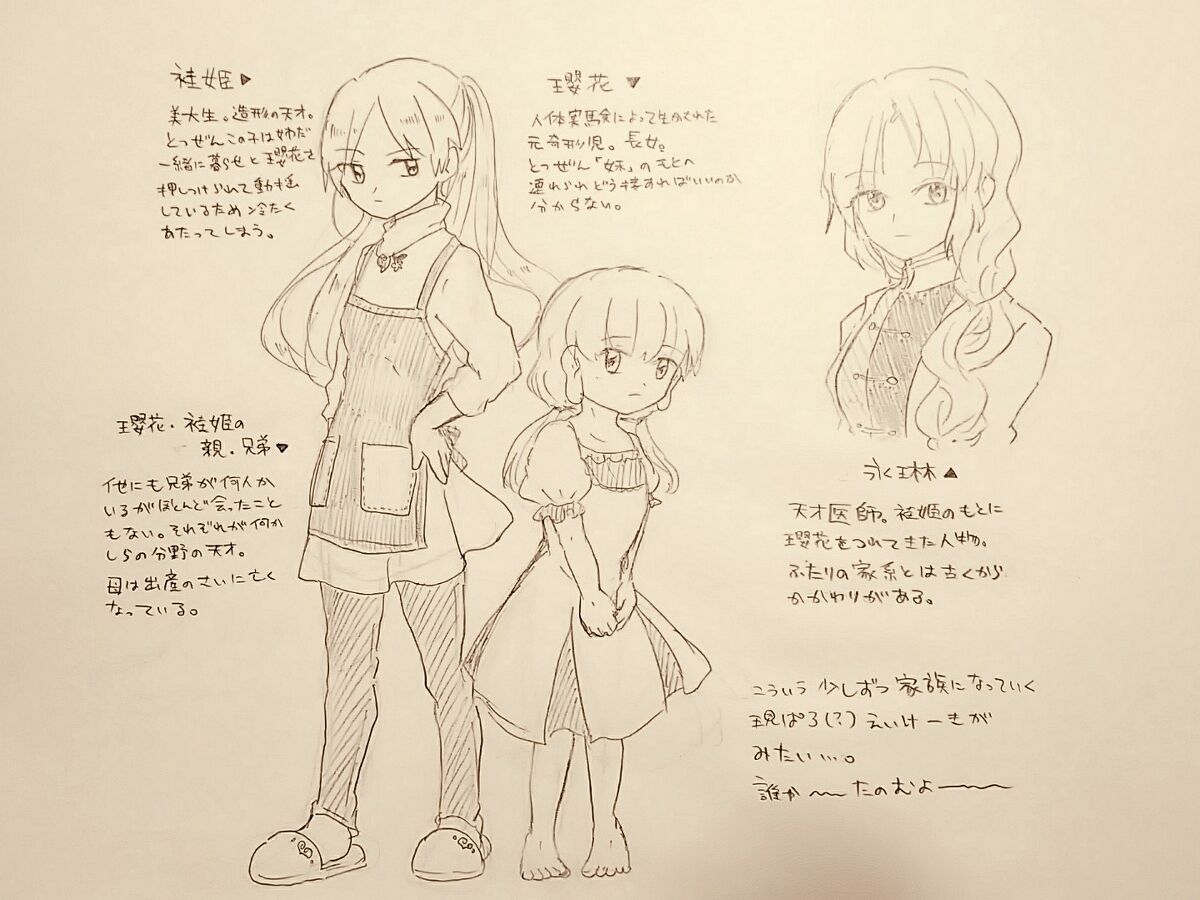 袿姫▶
美大生。造形の天才。
とつぜんこの子は姉だ
一緒に暮らせと瓔花を
押しつけられて動揺
しているため冷たく
あたってしまう。
瓔花▼
人体実験によって生かされた
元奇形児。長女。
とつぜん「妹」のもとへ
連れられどう接すればいいのか
分からない。
瓔花・袿姫の
親・兄弟▼
他にも兄弟が何人か
いるがほとんど会ったこと
もない。それぞれが何か
しらの分野の天才。
母は出産のさいに亡く
なっている。
永琳▲
天才医師。袿姫のもとに
瓔花をつれてきた人物。
ふたりの家系とは古くから
かかわりがある。
こういう少しずつ家族になっていく
現ぱろ(?)えいけーきが
みたい…。
誰か〜〜たのむよ――